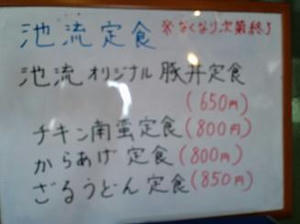 池流定食 ※なくなり次第終了
池流 オリジナル 豚丼定食
(650円)
チキン南蛮定食(800円)
からあげ定食(800円)
ざるうどん定食(850円)